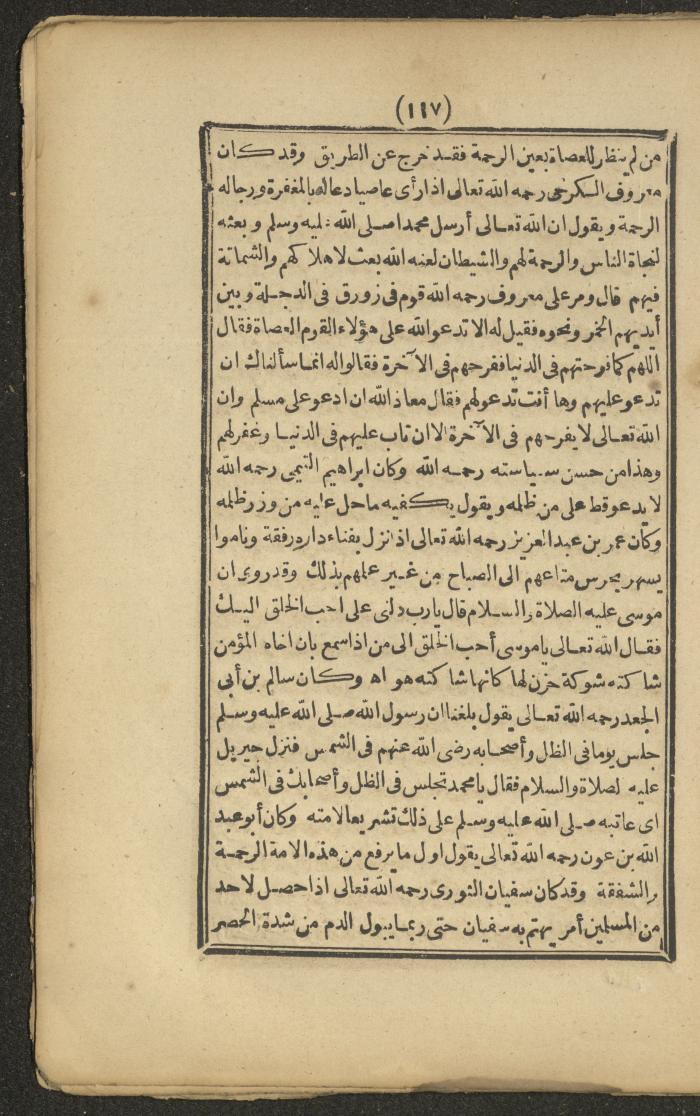 (١١٧)
من لم ينظر للعصاة بعين الرحمة فقد خرج عن الطريق وقد كان
معروف الكرخى رحمه الله تعالى اذا رأى عاصيا دعا له بالمغفرة ورجا له
الرحمة ويقول ان الله تعالى أرسل محمدا صلى الله عليه وسلم وبعثه
لنجاة الناس والرحمة لهم والشيطان لعنه الله بعث لاهلاكهم والشماتة
فيهم قال ومر على معروف رحمه الله قوم فى زورق فى الدجلة وبين
أيديهم الخمر ونحوه فقيل له الا تدعو الله على هؤلاء القوم العصاة فقال
اللهم كما فرحتهم فى الدنيا ففرحهم فى الآخرة فقالوا له انما سألناك ان
تدعو عليهم وها أنت تدعو لهم فقال معاذ الله ان ادعو على مسلم وان
الله تعالى لا يفرحهم فى الآخرة الا ان تاب عليهم فى الدنيا وغفر لهم
وهذا من حسن سياسته رحمه الله وكان ابراهيم التيمى رحمه الله
لا يدعو قط على من ظلمه ويقول يكفيه ما حل عليه من وزر ظلمه
وكان عمر بن عبد العزيز رحمه الله تعالى اذا نزل بفناء داره رفقة وناموا
يسهر يحرس متاعهم الى الصباح من غير علمهم بذلك وقد روى ان
موسى عليه الصلاة والسلام قال يارب دلنى على احب الخلق اليك
فقال الله تعالى ياموسى أحب الخلق الى من اذا سمع بان اخاه المؤمن
شاكته شوكة حزن لها كانها شاكته هو اه وكان سالم بن أبى
الجعد رحمه الله تعالى يقول بلغنا ان رسول الله صلى الله عليه وسلم
جلس يوما فى الظل وأصحابه رضى الله عنهم فى الشمس فنزل جبريل
عليه لصلاة والسلام فقال يا محمد تجلس فى الظل وأصحابك فى الشمس
اى عاتبه صلى الله عليه وسلم على ذلك تشريعا لامته وكان أبو عبد
الله بن عون رحمه الله تعالى يقول اول ما يرفع من هذه الامة الرحمة
والشفقة وقد كان سفيان الثورى رحمه الله تعالى اذا حصل لاحد
من المسلمين أمر يهتم به سفيان حتى ربما يبول الدم من شدة الحصر